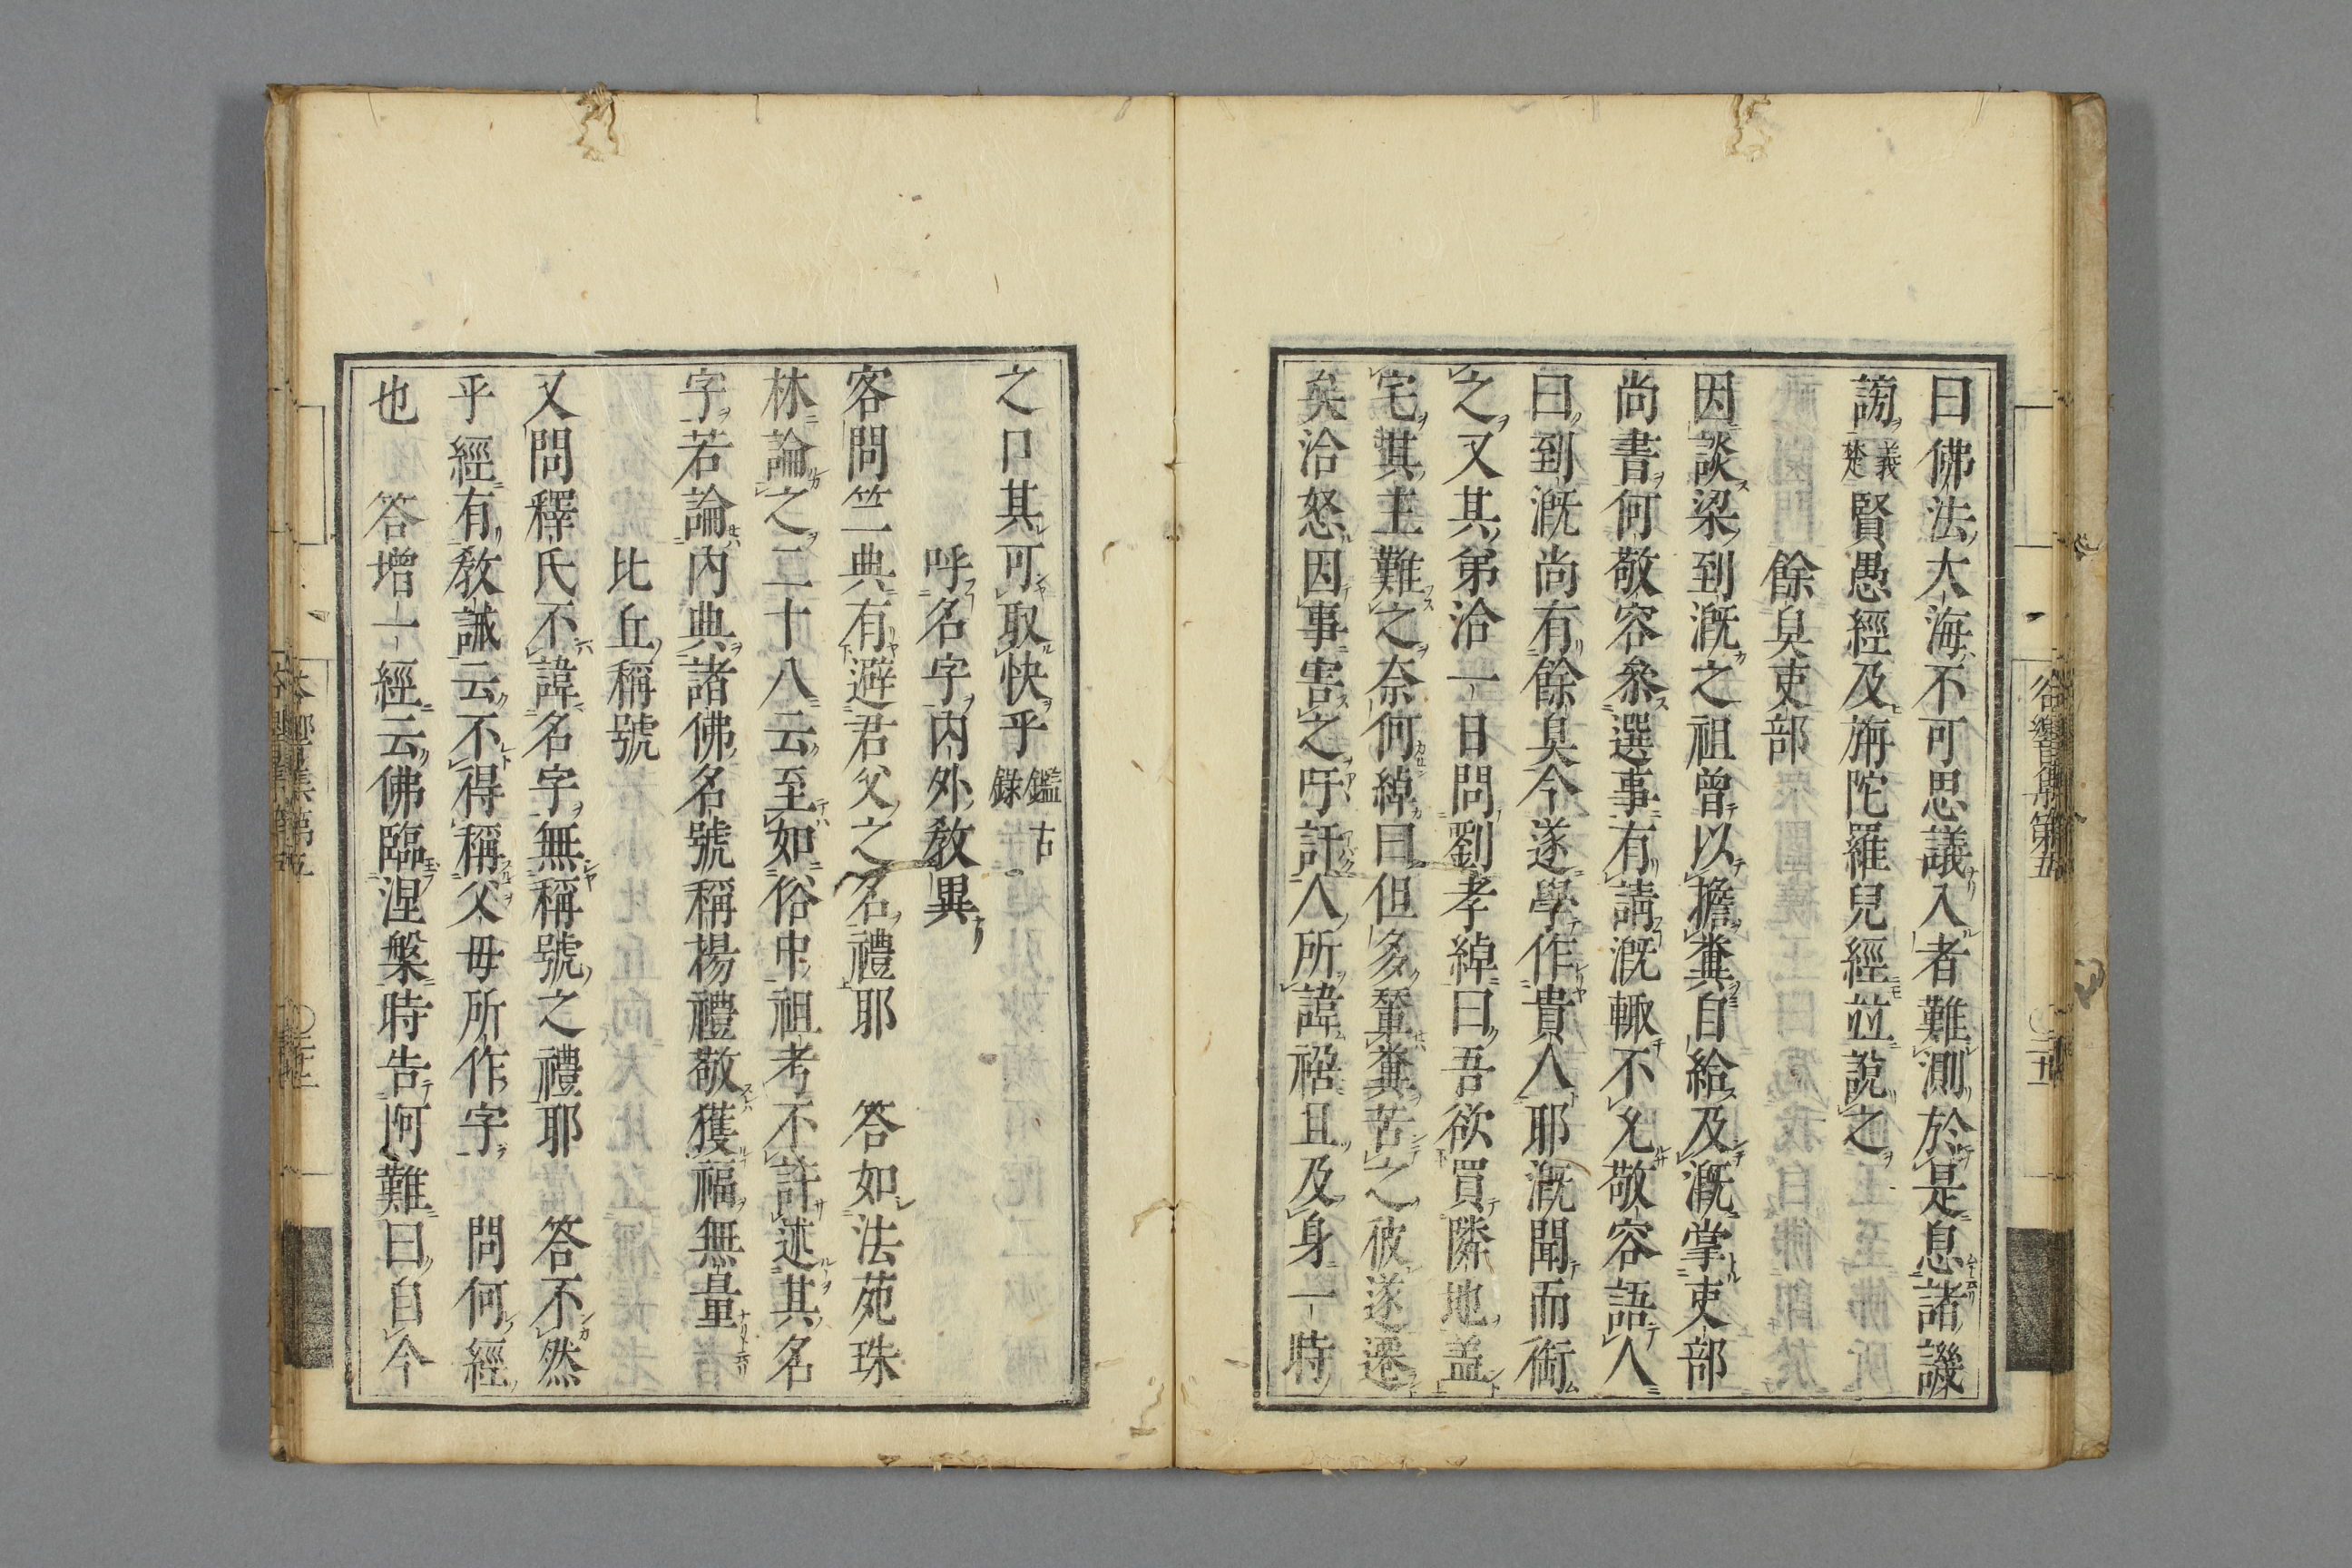 曰佛法大海不可思議入者難測於是息諸譏
謗義楚賢愚經及旃陀羅兒經竝說之
餘臭吏部
因談梁到漑之祖曾以擔糞自給及漑掌吏部
尚書何敬容叅選事有請漑輙不允敬容語人
曰到漑尚有餘臭今遂學作貴人耶漑聞而銜
之又其弟洽一日問劉孝綽曰吾欲買隣地盖
宅其主難之奈何綽曰但多輦糞苦之彼遂遷
矣洽怒因事害之吁訐人所諱禍且及身一時
之口其可取快乎鑑古錄
呼名字内外教異
客問竺典有避君父之名禮耶　答如法苑珠
林論之二十八云至如俗中祖考不許述其名
字若論内典諸佛名號稱楊禮敬獲福無量
比丘稱號
又問釋氏不諱名字無稱號之禮耶　答不然
乎經有敎誡云不得稱父母所作字　問何經
也　答增一經云佛臨涅槃時告阿難曰自今
谷響集第五
〇二五